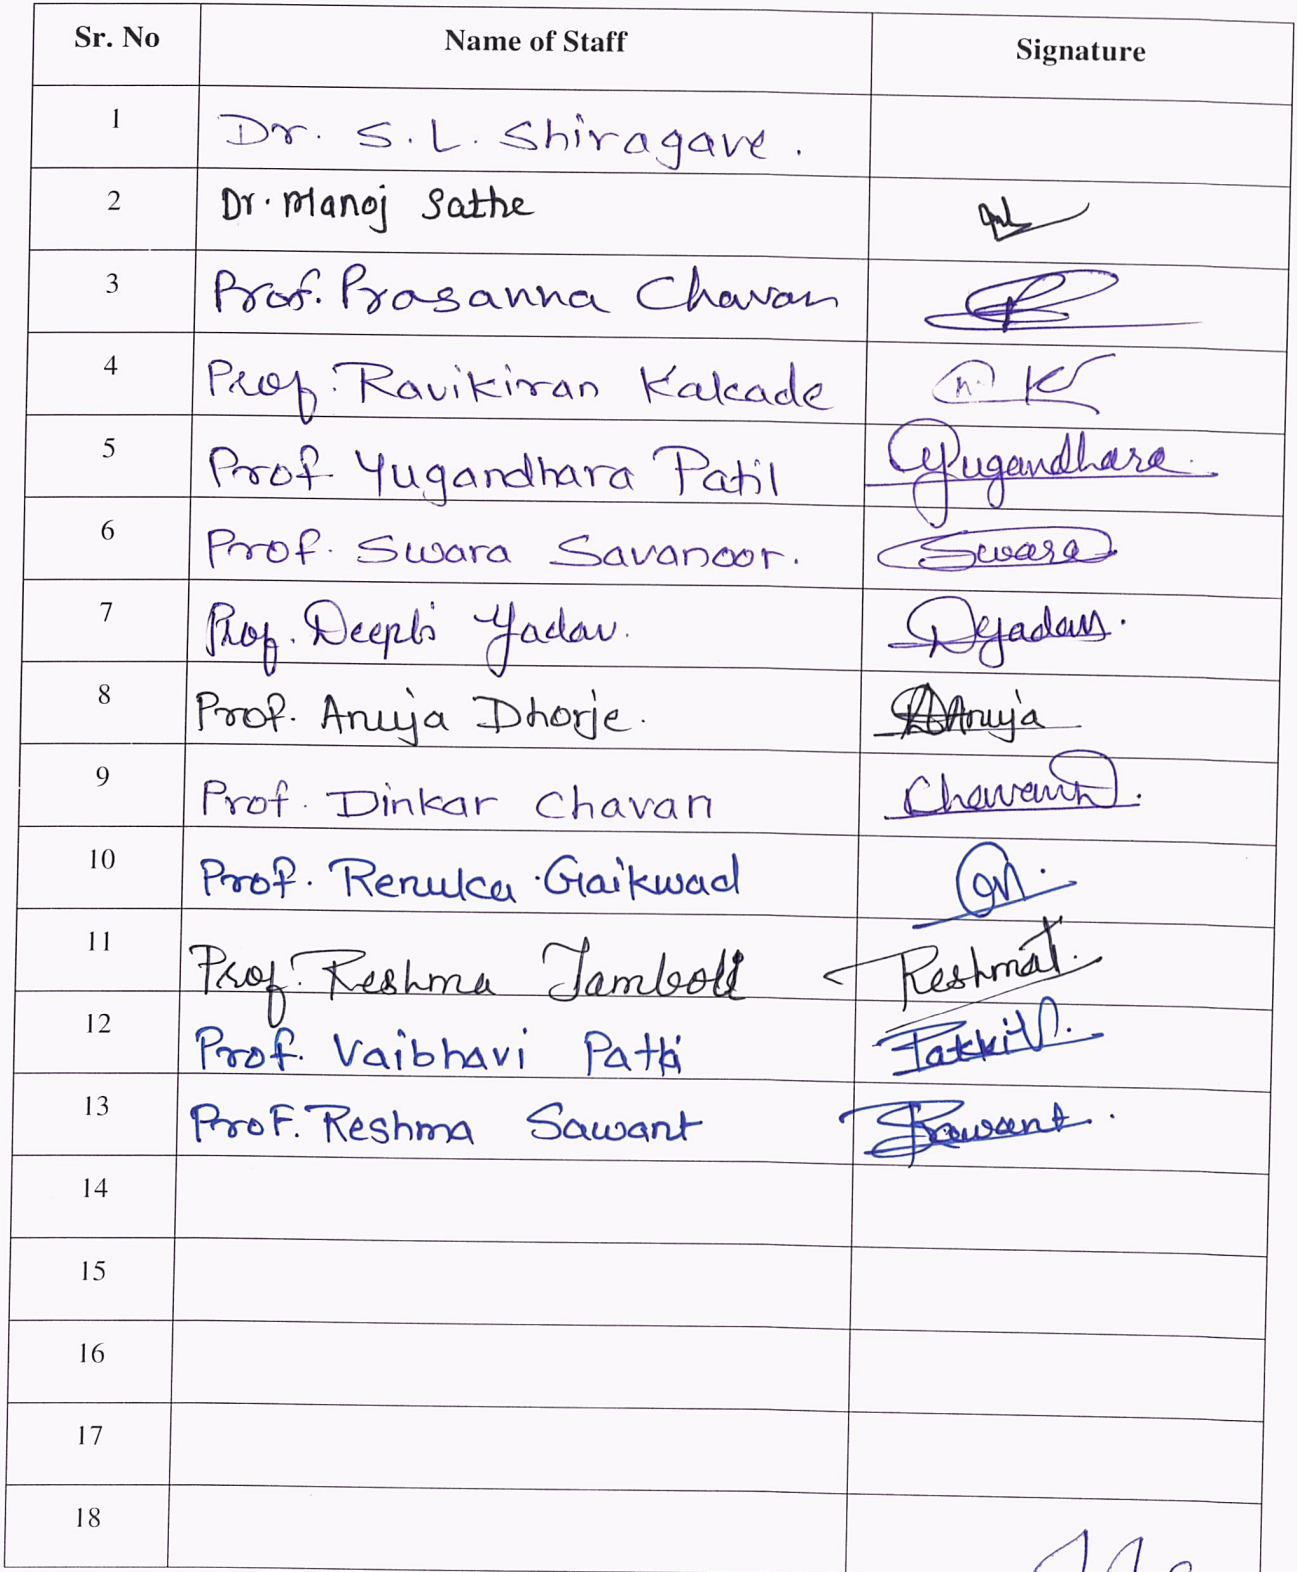 Sr. No Name of Staff Signature
1 Dr. S. L. Shiragave.
2 Dr. Manoj Sathe
3 Prof. Prasanna Chavan
4 Prof. Ravikiran Kalcade
5 Prof Yugandhara Patil Yugandhara
6 Prof. Swara Savanoor. Swara
7 Prof. Deepti Yadav. DYadav.
8 Prof. Anuja Dhorje. Anuja
9 Prof. Dinkar Chavan
10 Prof. Renuka Gaikwad
11 Prof. Reshma Tamboli ReshmaT.
12 Prof. Vaibhavi Patki PatkiV.
13 Prof. Reshma Sawant Sawant.
14
15
16
17
18